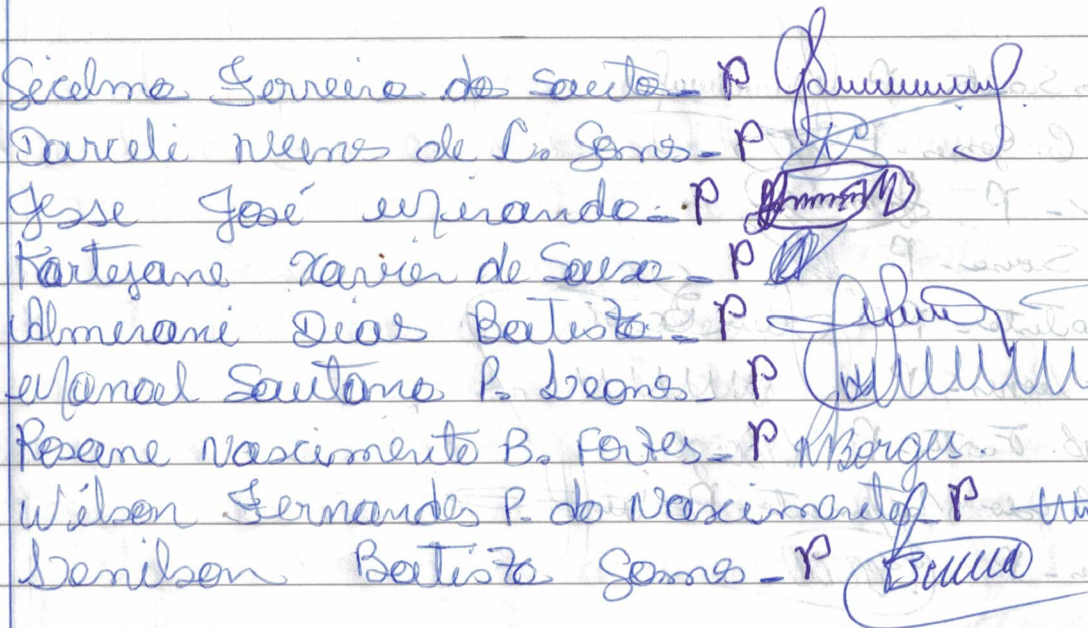 Sicelma Ferreira do Santo - P
Darceli Nunes de L. Gomes - P
Jesse José Miranda - P
Kartejane Xavier de Souza - P
Almerani Dias Batista - P
Manoel Santana P. Leones - P
Roseane Nascimento B. Fortes - P RBorges.
Wilson Fernandes P. do Nascimento - P
Denilson Batista Gomes - P